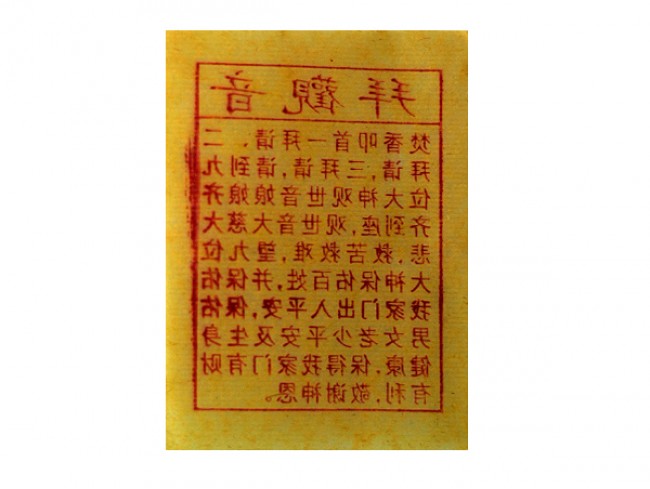 拜觀音
焚香叩首一拜请、二
拜请,三拜请,请到九
位大神观世音娘娘齐
齐到座,观世音大慈大
悲、救苦救难,望九位
大神保佑百姓,并保佑
我家门出入平安,保佑
男女老少平安及生身
健康,保得我家门有财
有利,敬谢神恩。